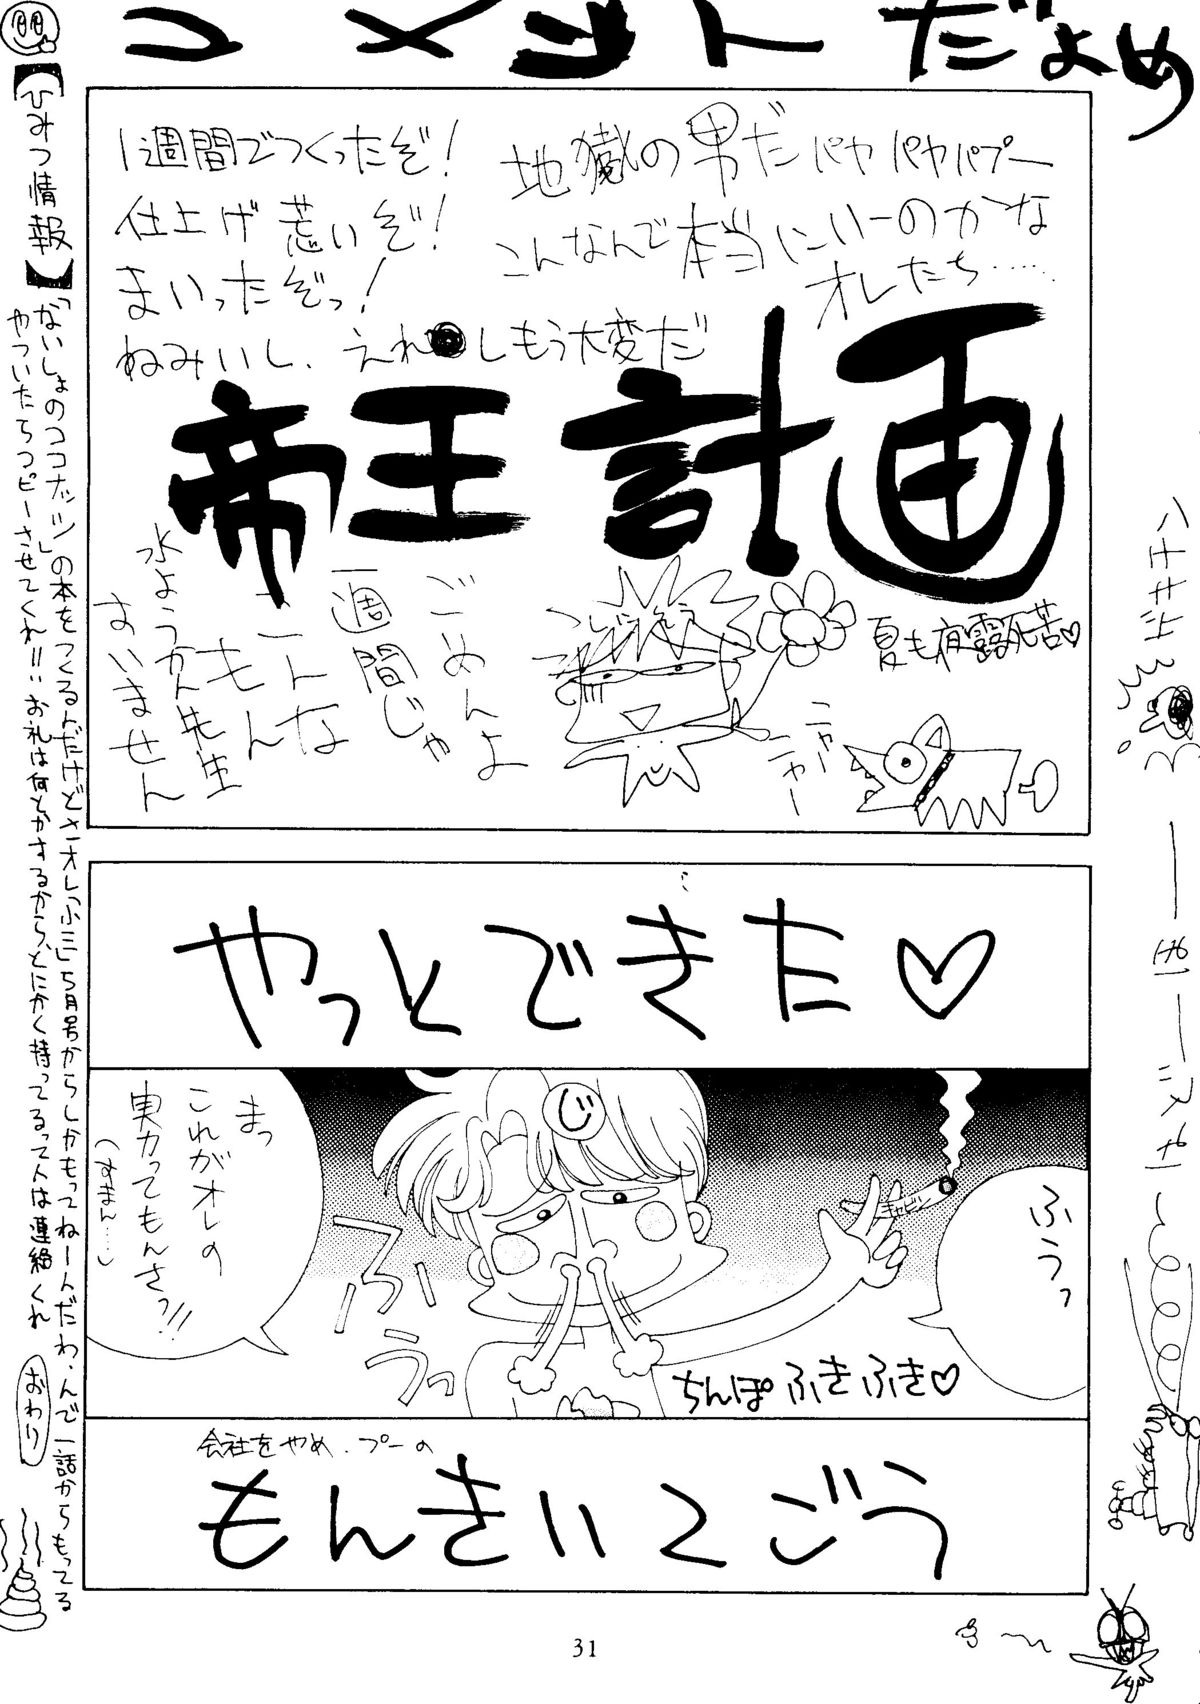 コメントだよめ
地獄の男だパヤパヤパプー
こんなんで本当にいーのかな
オレたち……
1週間でつくったぞ!
仕上げ荒いぞ!
まいったぞっ!
ねみいし、えれーしもう大変だ
帝王計画
夏も夜露死苦♡
ごめんよ
一週間じゃ
こんな
もん
水ようかん先生
すいません
ニャー
ニャー
やっとできた♡
ふうっ
まっ
これがオレの
実力ってもんさっ!!
(すまん…)
ふうっ
じ
キャビン
ちんぽふきふき♡
会社をやめ、プーの
もんきい2ごう
【ひみつ情報】
「ないしょのココナッツ」の本をつくるんだけどさーオレ「ふふふ」5月号からしかもってねーんだわ、んで一話からもってる
やついたらコピーさせてくれ!!お礼は何とかするから、とにかく持ってるって人は連絡くれ
おわり
31